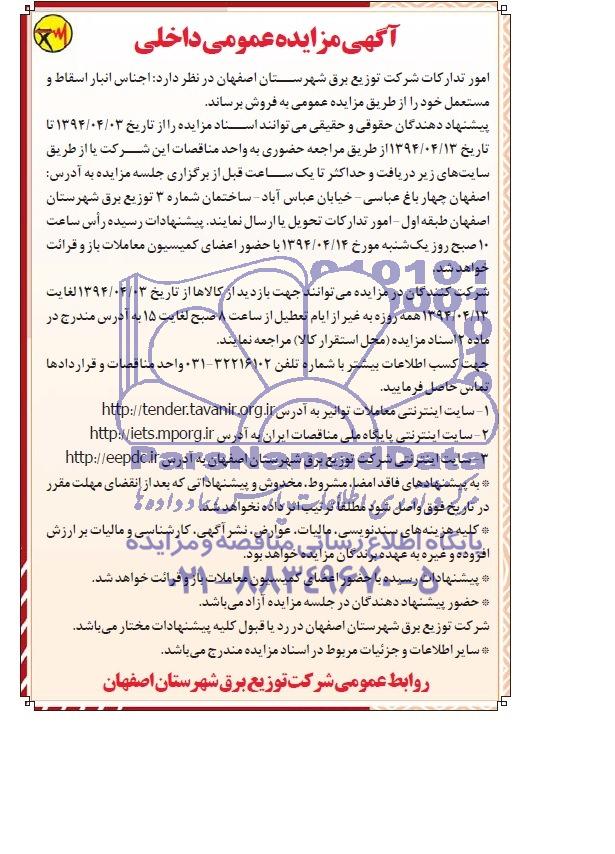 آگهی مزایده عمومی داخلی
امور تدارکات شرکت توزیع برق شهرستان اصفهان در نظر دارد: اجناس انبار اسقاط و
مستعمل خود را از طریق مزایده عمومی به فروش برساند.
پیشنهاد دهندگان حقوقی و حقیقی می توانند اسناد مزایده را از تاریخ ۱۳۹۴/۰۴/۰۳ تا
تاریخ ۱۳۹۴/۰۴/۱۳ از طریق مراجعه حضوری به واحد مناقصات این شرکت یا از طریق
سایت‌های زیر دریافت و حداکثر تا یک ساعت قبل از برگزاری جلسه مزایده به آدرس:
اصفهان چهار باغ عباسی - خیابان عباس آباد - ساختمان شماره ۳ توزیع برق شهرستان
اصفهان طبقه اول - امور تدارکات تحویل یا ارسال نمایند. پیشنهادات رسیده رأس ساعت
۱۰ صبح روز یک‌شنبه مورخ ۱۳۹۴/۰۴/۱۴ با حضور اعضای کمیسیون معاملات باز و قرائت
خواهد شد.
شرکت کنندگان در مزایده می توانند جهت بازدید از کالاها از تاریخ ۱۳۹۴/۰۴/۰۳ لغایت
۱۳۹۴/۰۴/۱۳ همه روزه به غیر از ایام تعطیل از ساعت ۸ صبح لغایت ۱۵ به آدرس مندرج در
ماده ۲ اسناد مزایده (محل استقرار کالا) مراجعه نمایند.
جهت کسب اطلاعات بیشتر با شماره تلفن ۳۲۲۱۶۱۰۲-۰۳۱ واحد مناقصات و قراردادها
تماس حاصل فرمایید.
۱- سایت اینترنتی معاملات توانیر به آدرس http://tender.tavanir.org.ir
۲- سایت اینترنتی پایگاه ملی مناقصات ایران به آدرس http://iets.mporg.ir
۳- سایت اینترنتی شرکت توزیع برق شهرستان اصفهان به آدرس http://eepdc.ir
* به پیشنهادهای فاقد امضا، مشروط، مخدوش و پیشنهاداتی که بعد از انقضای مهلت مقرر
در تاریخ فوق واصل شود مطلقا ترتیب اثر داده نخواهد شد.
* کلیه هزینه‌های سندنویسی، مالیات، عوارض، نشر آگهی، کارشناسی و مالیات بر ارزش
افزوده و غیره به عهده برندگان مزایده خواهد بود.
* پیشنهادات رسیده با حضور اعضای کمیسیون معاملات باز و قرائت خواهد شد.
* حضور پیشنهاد دهندگان در جلسه مزایده آزاد می‌باشد.
شرکت توزیع برق شهرستان اصفهان در رد یا قبول کلیه پیشنهادات مختار می‌باشد.
* سایر اطلاعات و جزئیات مربوط در اسناد مزایده مندرج می‌باشد.
روابط عمومی شرکت توزیع برق شهرستان اصفهان
ParsNamadData
مرکز فرآوری اطلاعات پارس نماد داده ها
پایگاه اطلاع رسانی مناقصه و مزایده
۰۲۱-۸۸۳۴۹۶۷۰-۵